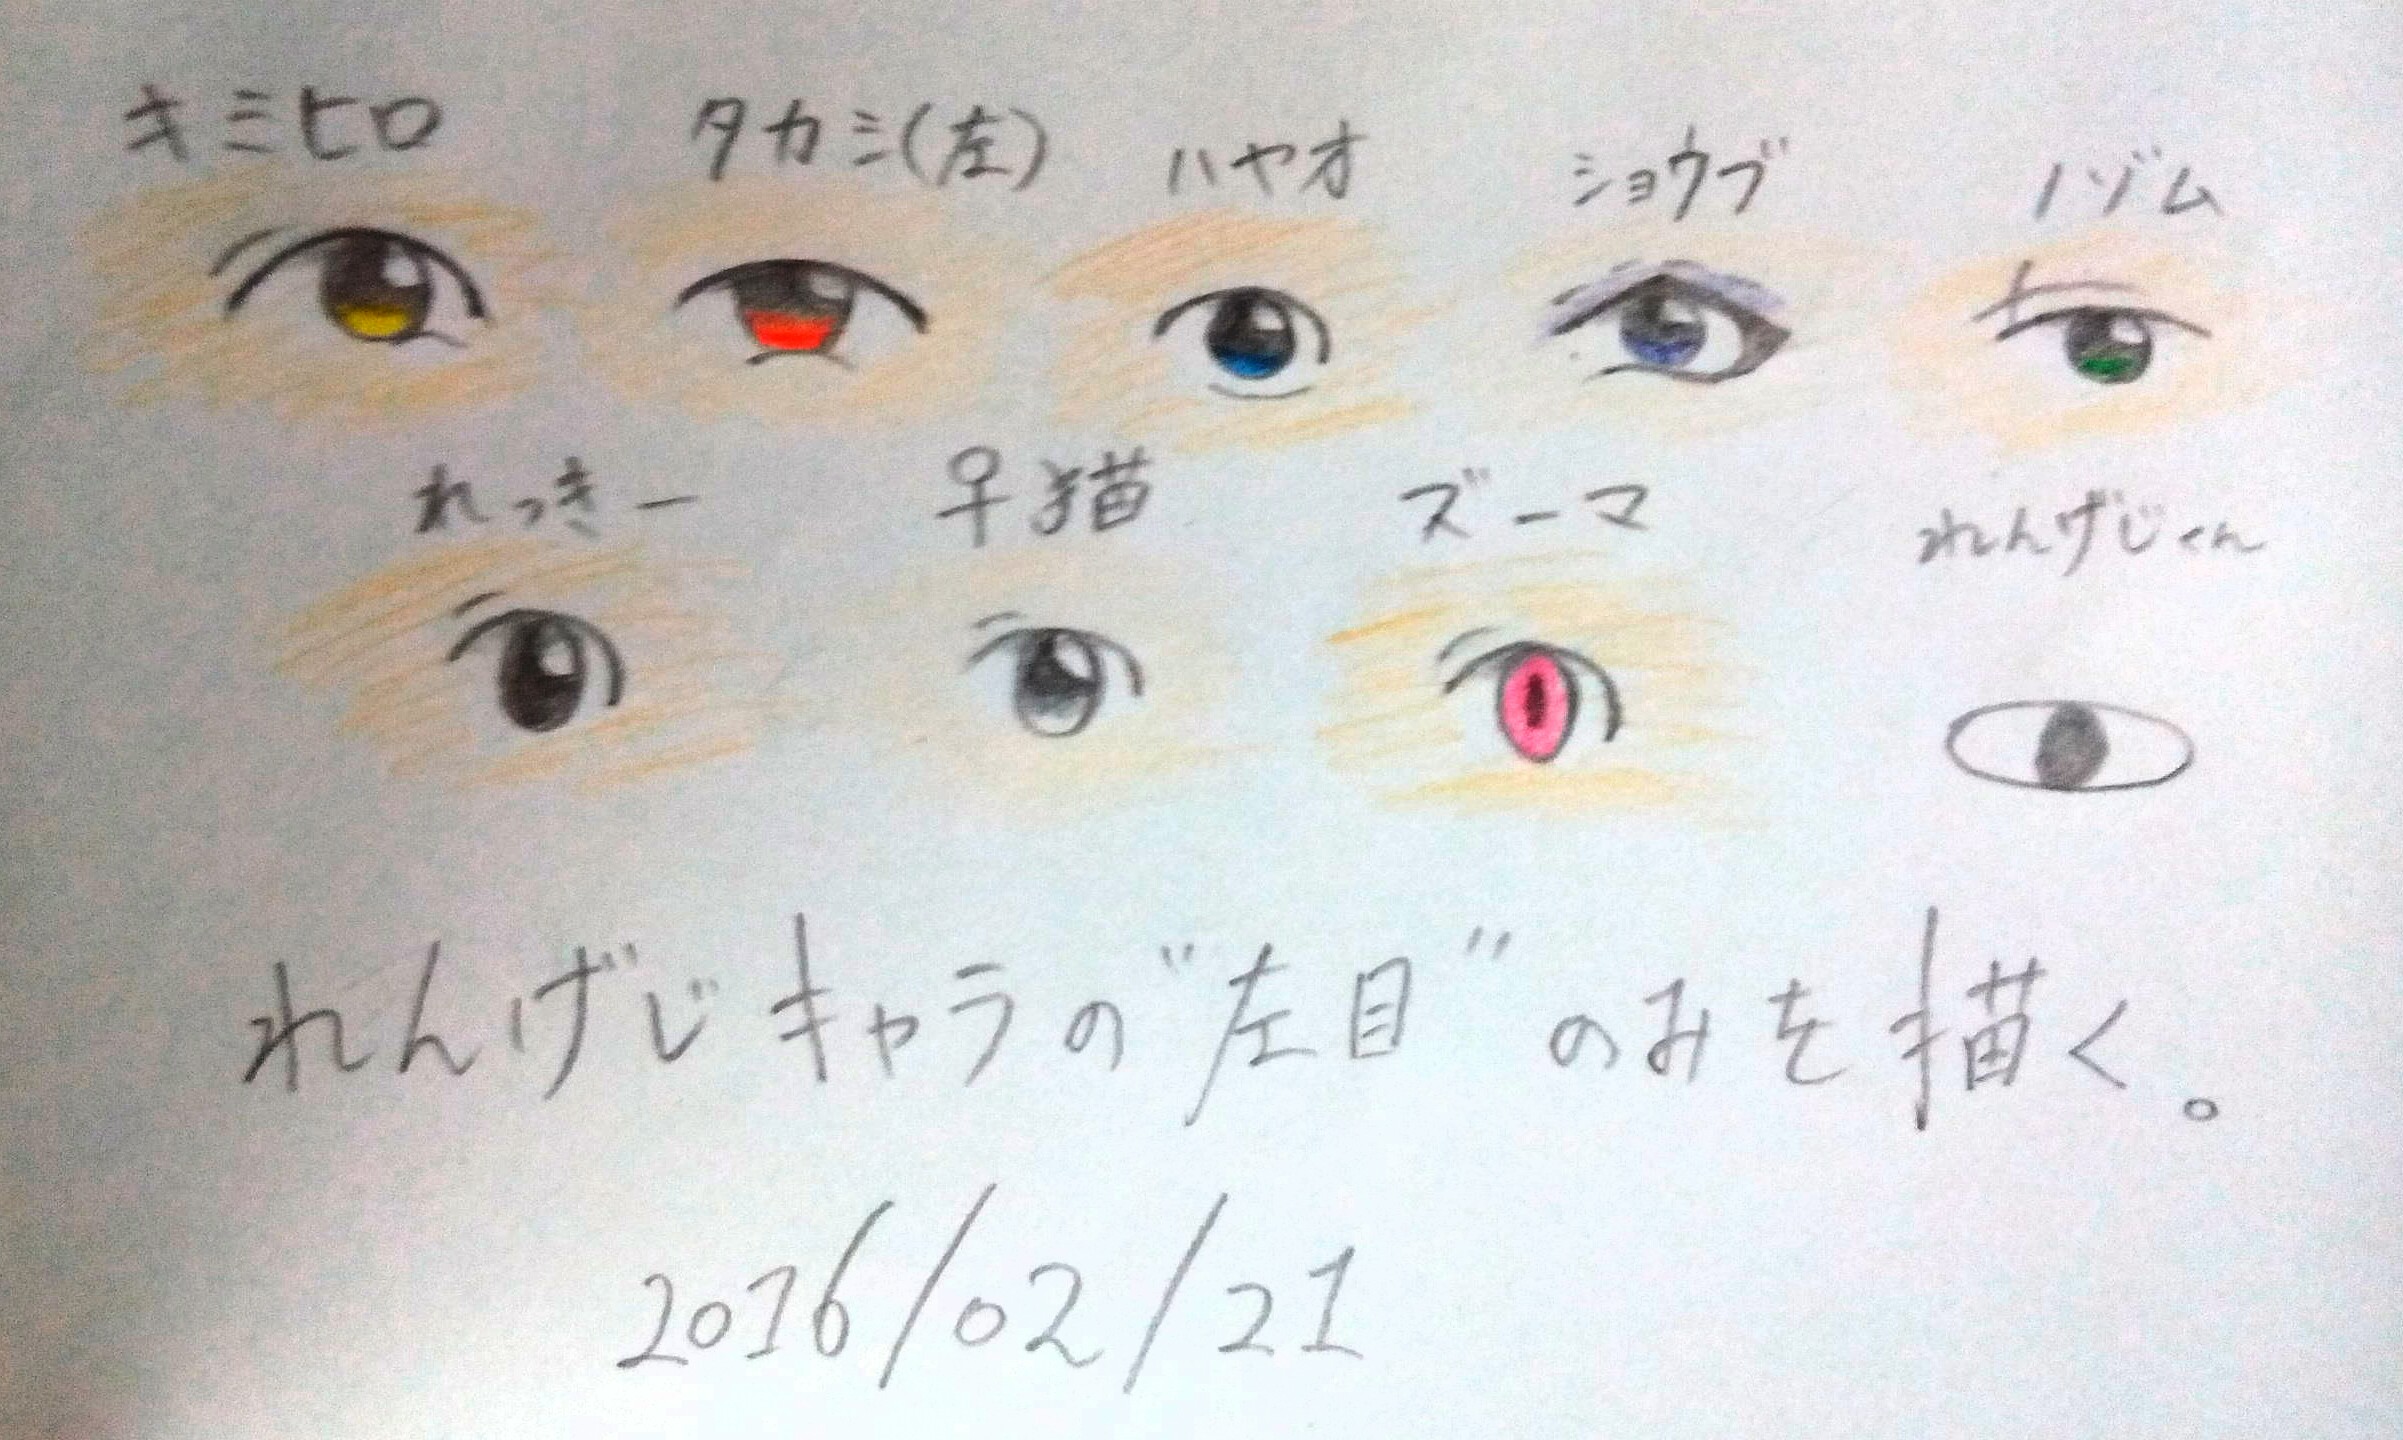 キミヒロ タカシ(左) ハヤオ ショウブ ノゾム
れっきー 早猫 ズーマ れんげじゃん
れんげじキャラの"左目"のみを描く。
2016/02/21